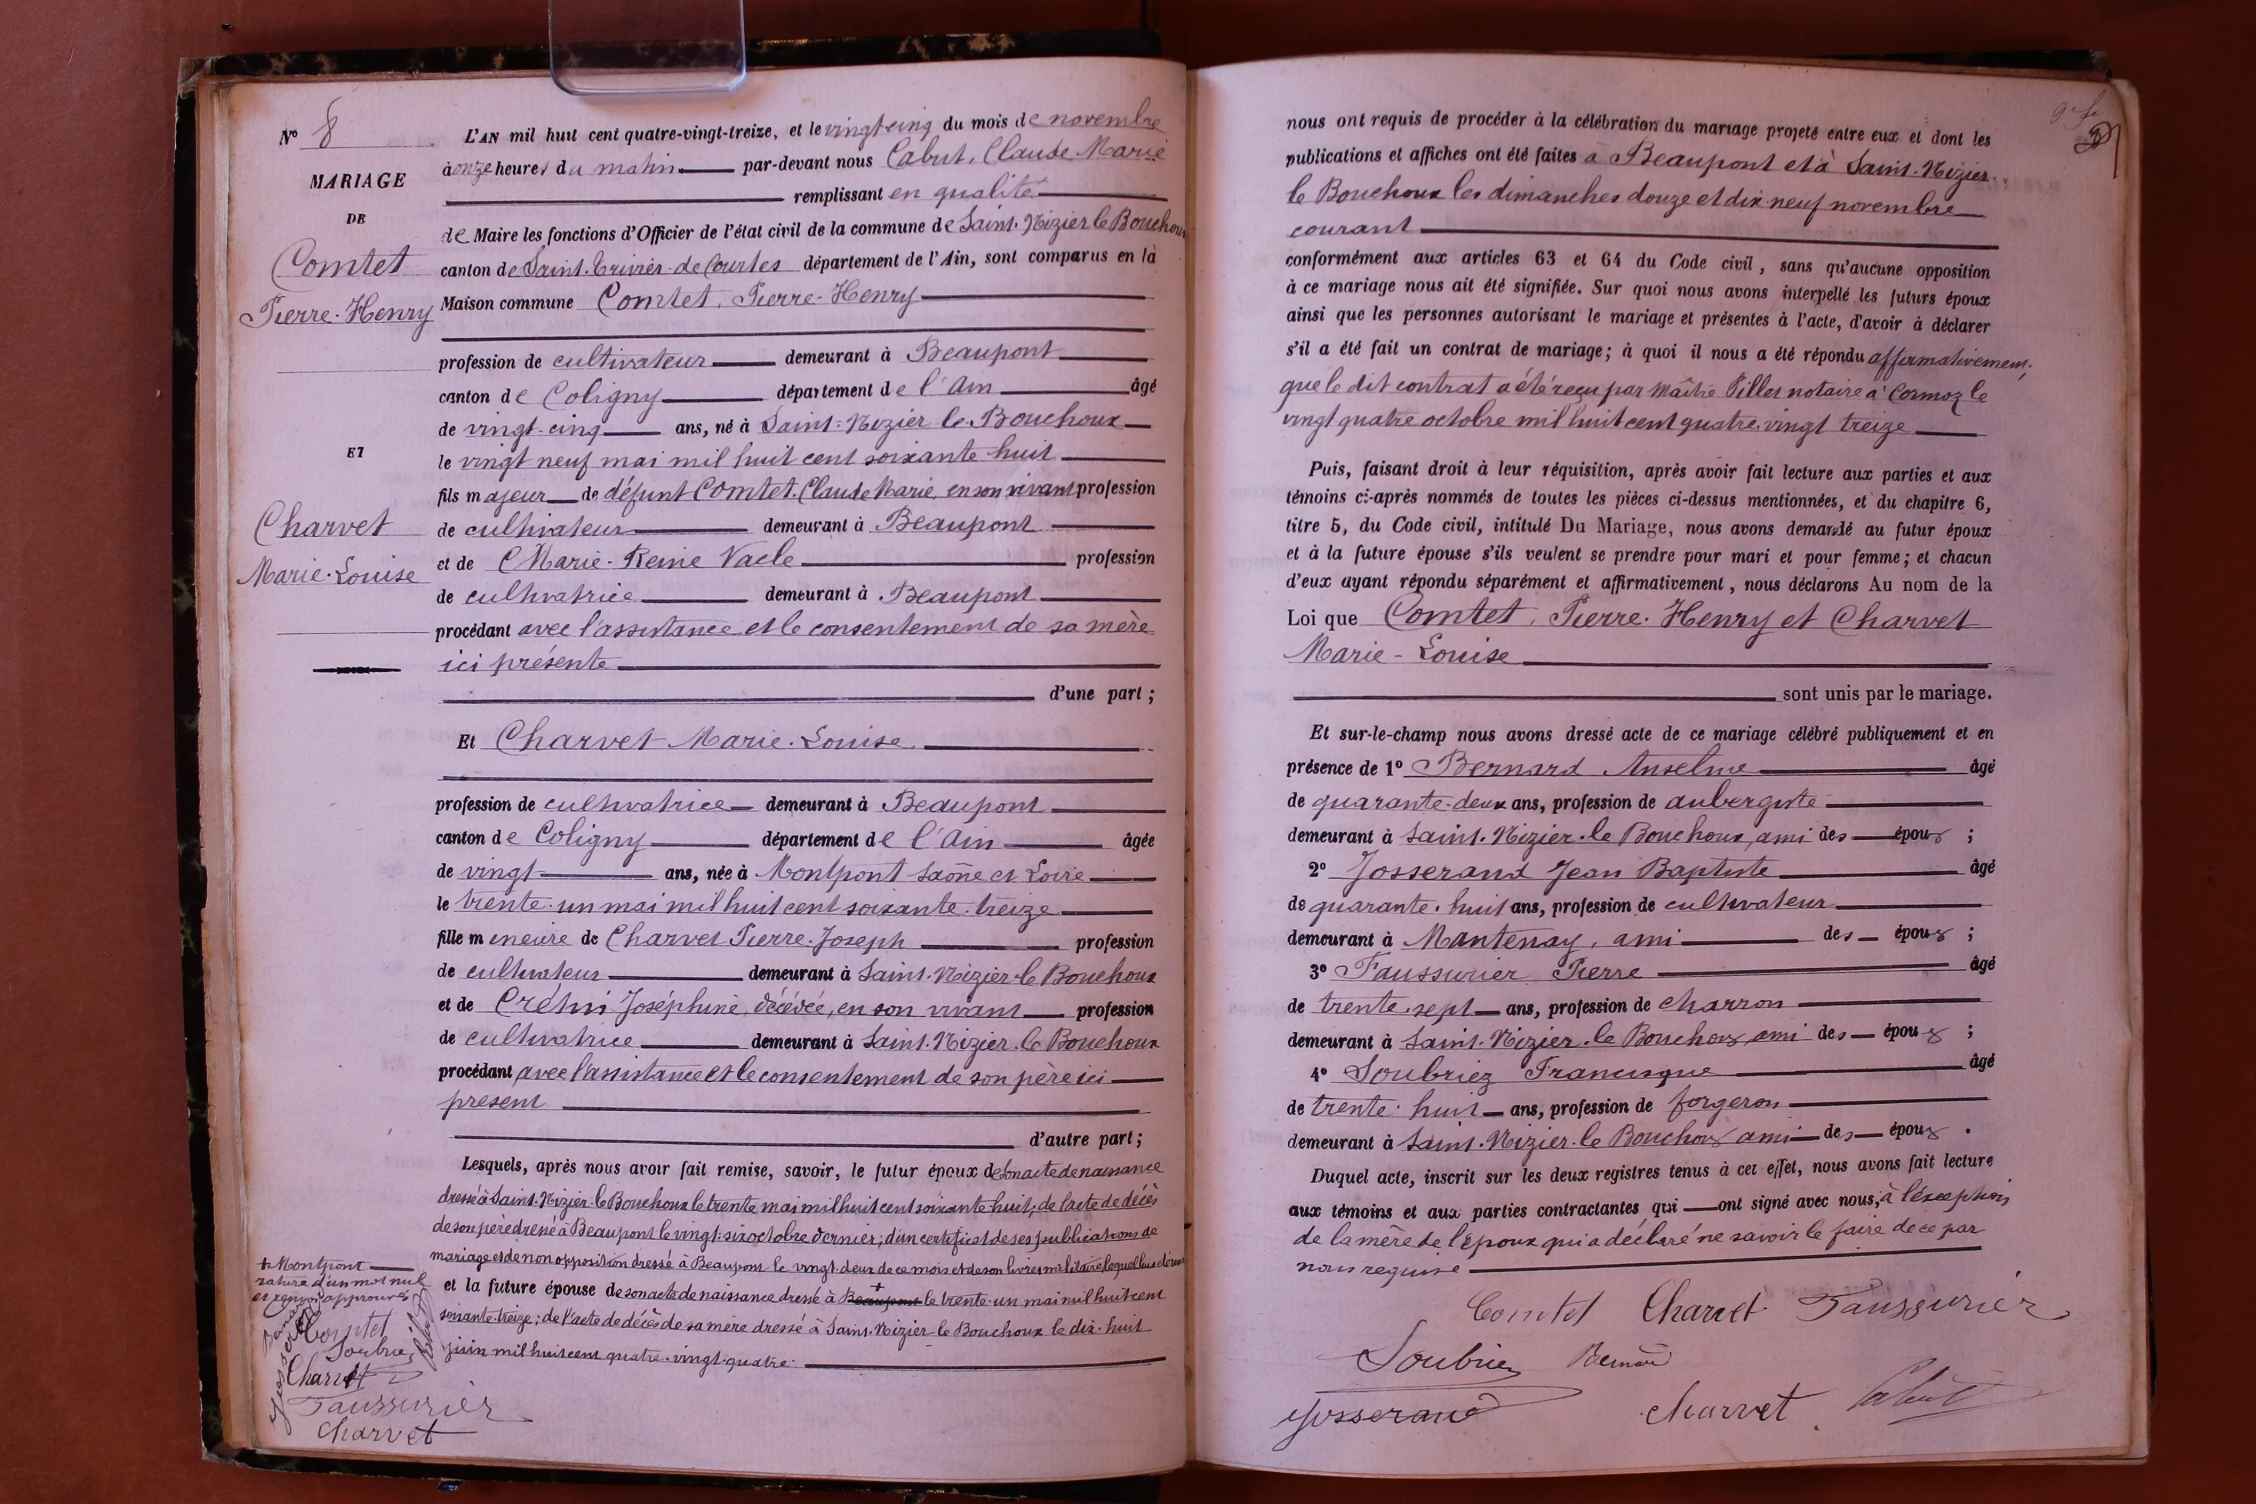 N° 8
MARIAGE
DE
Comtet
Pierre-Henry
ET
Charvet
Marie-Louise
L'AN mil huit cent quatre-vingt-treize, et le vingt cinq du mois de novembre
à onze heures du matin par-devant nous Cabut, Claude-Marie
remplissant en qualité
de Maire les fonctions d'Officier de l'état civil de la commune de Saint-Nizier le Bouchoux
canton de Saint-Trivier-de-Courtes département de l'Ain, sont comparus en la
Maison commune Comtet, Pierre-Henry
profession de cultivateur demeurant à Beaupont
canton de Coligny département de l'Ain âgé
de vingt-cinq ans, né à Saint-Nizier-le-Bouchoux
le vingt neuf mai mil huit cent soixante-huit
fils majeur de défunt Comtet, Claude Marie, en son vivant profession
de cultivateur demeurant à Beaupont
et de Marie-Reine Vacle profession
de cultivatrice demeurant à Beaupont
procédant avec l'assistance et le consentement de sa mère
ici présente
d'une part ;
Et Charvet Marie-Louise
profession de cultivatrice demeurant à Beaupont
canton de Coligny département de l'Ain âgée
de vingt ans, née à Montpont Saône et Loire
le trente-un mai mil huit cent soixante-treize
fille mineure de Charvet Pierre-Joseph profession
de cultivateur demeurant à Saint-Nizier-le Bouchoux
et de Joséphine, décédée, en son vivant profession
de cultivatrice demeurant à Saint-Nizier-le Bouchoux
procédant avec l'assistance et le consentement de son père ici
présent
d'autre part ;
Lesquels, après nous avoir fait remise, savoir, le futur époux de son acte de naissance
dressé à Saint-Nizier-le Bouchoux le trente mai mil huit cent soixante huit; de l'acte de décès
de son père dressé à Beaupont le vingt-six octobre dernier; d'un certificat de ses publications de
mariage et de non opposition dressé à Beaupont le vingt-deux de ce mois et de son livret militaire lequel
et la future épouse de son acte de naissance dressé à Beaupont + le trente-un mai mil huit cent
soixante-treize; de l'acte de décès de sa mère dressé à Saint-Nizier-le Bouchoux le dix-huit
juin mil huit cent quatre-vingt-quatre.
+ Montpont
rature d'un mot nul
et renvoi approuvés
Comtet
Soubriez
Josserand
Charvet
Taussurier
Charvet
nous ont requis de procéder à la célébration du mariage projeté entre eux et dont les
publications et affiches ont été faites à Beaupont et à Saint-Nizier-
le Bouchoux les dimanches douze et dix neuf novembre
courant
conformément aux articles 63 et 64 du Code civil, sans qu'aucune opposition
à ce mariage nous ait été signifiée. Sur quoi nous avons interpellé les futurs époux
ainsi que les personnes autorisant le mariage et présentes à l'acte, d'avoir à déclarer
s'il a été fait un contrat de mariage ; à quoi il nous a été répondu affirmativement,
que le dit contrat a été reçu par Maître Pillet notaire à Cormoz le
vingt quatre octobre mil huit cent quatre-vingt treize
Puis, faisant droit à leur réquisition, après avoir fait lecture aux parties et aux
témoins ci-après nommés de toutes les pièces ci-dessus mentionnées, et du chapitre 6,
titre 5, du Code civil, intitulé Du Mariage, nous avons demandé au futur époux
et à la future épouse s'ils veulent se prendre pour mari et pour femme ; et chacun
d'eux ayant répondu séparément et affirmativement, nous déclarons Au nom de la
Loi que Comtet, Pierre-Henry et Charvet
Marie-Louise
sont unis par le mariage.
Et sur-le-champ nous avons dressé acte de ce mariage célébré publiquement et en
présence de 1° Bernard Anselme âgé
de quarante-deux ans, profession de aubergiste
demeurant à Saint-Nizier-le Bouchoux, ami des époux ;
2° Josserand Jean Baptiste âgé
de quarante-huit ans, profession de cultivateur
demeurant à Mantenay, ami des époux ;
3° Taussurier Pierre âgé
de trente-sept ans, profession de charron
demeurant à Saint-Nizier-le Bouchoux ami des époux ;
4° Soubriez Francisque âgé
de trente-huit ans, profession de forgeron
demeurant à Saint-Nizier-le Bouchoux ami des époux.
Duquel acte, inscrit sur les deux registres tenus à cet effet, nous avons fait lecture
aux témoins et aux parties contractantes qui ont signé avec nous, à l'exception
de la mère de l'époux qui a déclaré ne savoir le faire de ce par
nous requise
Comtet Charvet Taussurier
Soubriez Bernard
Josserand Charvet Cabut